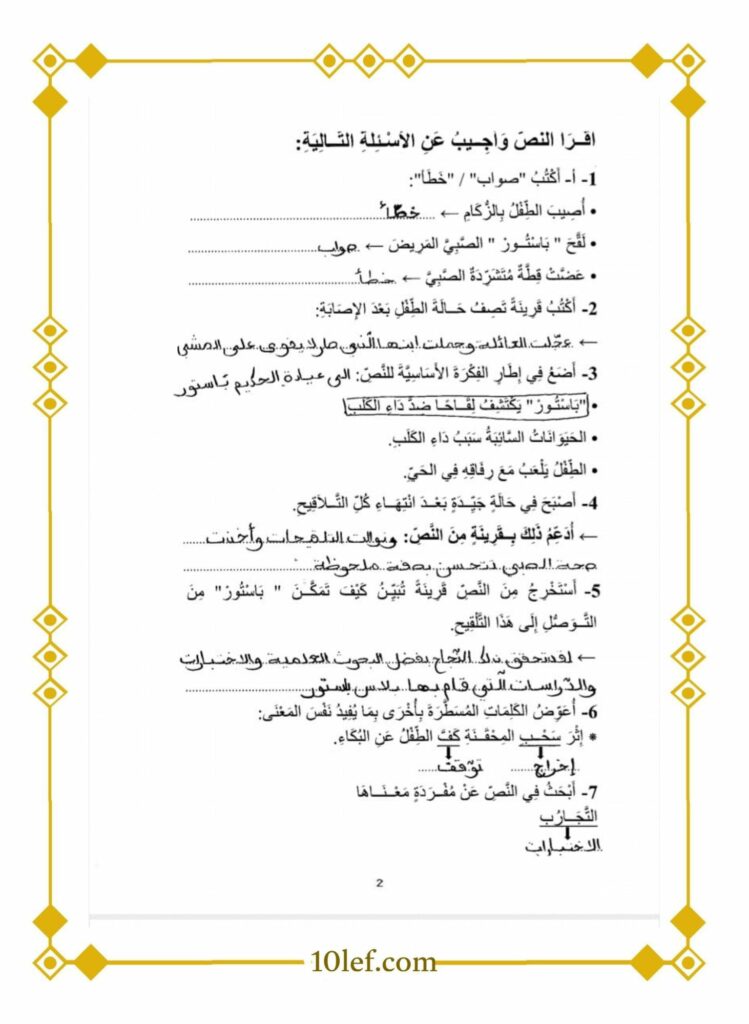 اقْــرَا النصّ وَأجِــيبُ عَنِ الأسْـئِلةِ التَّــالِيَةِ:
1- أ- أكْتُبُ "صواب" / "خَطَأ":
• أصِيبَ الطِّفْلُ بِالزُّكَامِ ← خطأ
• لَقَّحَ " بَاسْتُــورْ " الصَّبِيَّ المَرِيضَ ← صواب
• عَضَّتْ قِطَّةٌ مُتَشَرّدَةٌ الصَّبِيَّ ← خطأ
2- أكْتُبُ قَرِينَةً تَصِفُ حَــالَةَ الطِّفْلِ بَعْدَ الإِصَابَةِ:
← عجّلت العائلة وحملت ابنها الّذي صار لا يقوى على المشي
3- أضَعُ فِي إِطَارِ الفِكْرَةَ الأسَاسِيَّةَ للنّصّ: الى عيادة الحكيم باستور
• "بَاسْتُورْ" يَكْتَشِفُ لِقَــاحًـا ضِدَّ دَاءِ الكَلَبِ
• الحَيَوَانَاتُ السَّائِبَةُ سَبَبُ دَاءِ الكَلَبِ.
• الطِّفْلُ يَلْعَبُ مَعَ رِفَاقِهِ فِي الحَيّ.
4- أصْبَحَ فِي حَالَةٍ جَيِّـدَةٍ بَعْـدَ انْتِهَـاءِ كُلّ التَّــلَاقِيحِ.
← أدَعِّمُ ذَلِكَ بِــقَرِينَةٍ مِنَ النَّصّ: وتوالت التلقيحات وأخذت
صحة الصبي تتحسن بصفة ملحوظة
5- أسْتَخْرِجُ مِنَ النَّصّ قَرِينَةً تُبَيِّــنُ كَيْفَ تَمَكَّــنَ " بَاسْتُورْ" مِنَ
التَّــوَصُّلِ إِلَى هَذَا التَّلْقِيحِ.
← لقد تحقق ذلك النّجاح بفضل البحوث العلمية والاختبارات
والدّراسات الّتي قام بها باستور
6- أعَوِّضُ الكَلِمَاتِ المُسَطَّرَةَ بِأخْرَى بِمَا يُفِيدُ نَفْسَ المَعْنَى:
* إِثْرَ سَحْــبِ المِحْقَــنَةِ كَفَّ الطِّفْلُ عَنِ البُكَاءِ.
إخراج توقّف
7- أبْحَثُ فِي النَّصّ عَنْ مُفْــرَدَةٍ مَعْــنَــاهَا
التَّجَــارُب
الاختبارات
2
10lef.com